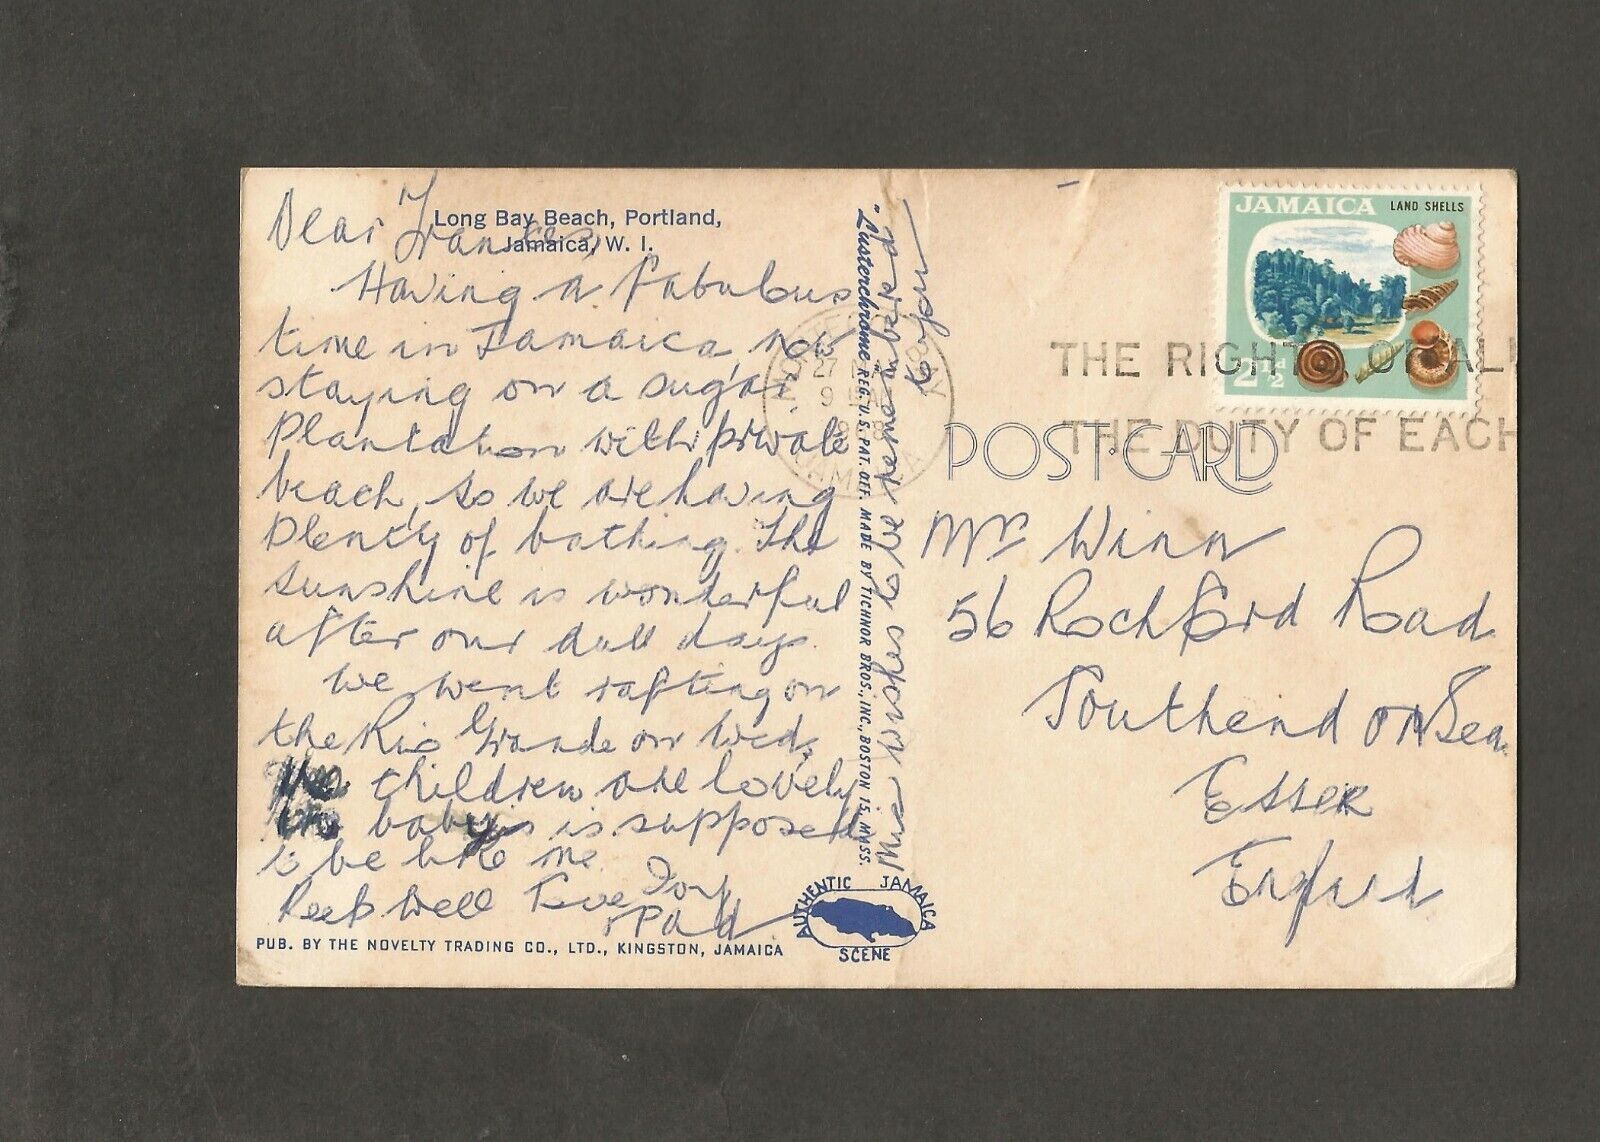 Long Bay Beach, Portland,
Jamaica, W. I.
Dear Frances,
Having a fabulous
time in Jamaica, now
staying on a sugar
Plantation with private
beach, so we are having
plenty of bathing. The
sunshine is wonderful
after our dull days.
We went rafting on
the Rio Grande on Wed,
The children are lovely
the baby is supposed
to be like me
Keep well Love
Pad
Mic wishes to be remembered
to you
PUB. BY THE NOVELTY TRADING CO., LTD., KINGSTON, JAMAICA
"Lusterchrome" REG. U.S. PAT. OFF. MADE BY TICHNOR BROS., INC., BOSTON 15, MASS.
AUTHENTIC JAMAICA
SCENE
27
9 AM
JAMAICA
JAMAICA LAND SHELLS
2½d
THE RIGHTS OF ALL
THE DUTY OF EACH
POST CARD
Mr Winn
56 Rochford Road
Southend on Sea
Essex
England